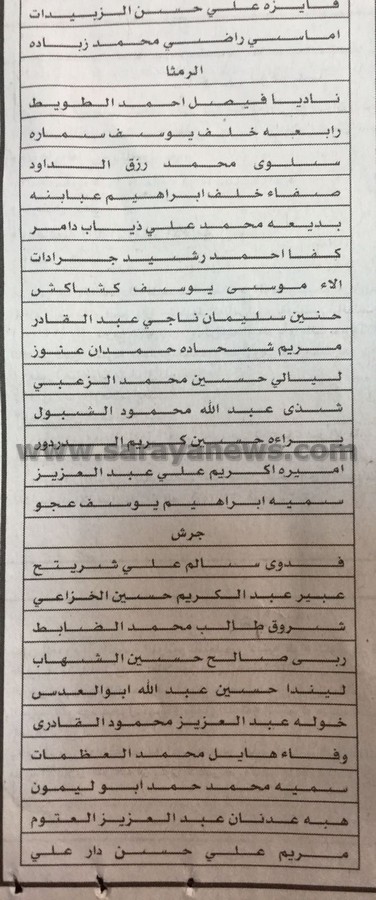 فايزه علي حسن الزبيدات
اماسي راضي محمد زباده
الرمثا
ناديا فيصل احمد الطويط
رابعه خلف يوسف سماره
سلوى محمد رزق الداود
صفاء خلف ابراهيم عبابنه
بديعه محمد علي ذياب دامر
كفا احمد رشيد جرادات
الاء موسى يوسف كشاكش
حنين سليمان ناجي عبد القادر
مريم شحاده حمدان عنوز
ليالي حسين محمد الزعبي
شذى عبد الله محمود الشبول
براءه حسين كريم الدردور
www.sarayanews.com
اميره اكريم علي عبد العزيز
سميه ابراهيم يوسف عجو
جرش
فدوى سالم علي شريتح
عبير عبد الكريم حسين الخزاعي
شروق طالب محمد الضابط
ربى صالح حسين الشهاب
ليندا حسين عبد الله ابوالعدس
خوله عبد العزيز محمود القادرى
وفاء هايل محمد العظمات
سميه محمد حمد ابو ليمون
هبه عدنان عبد العزيز العتوم
مريم علي حسن دار علي